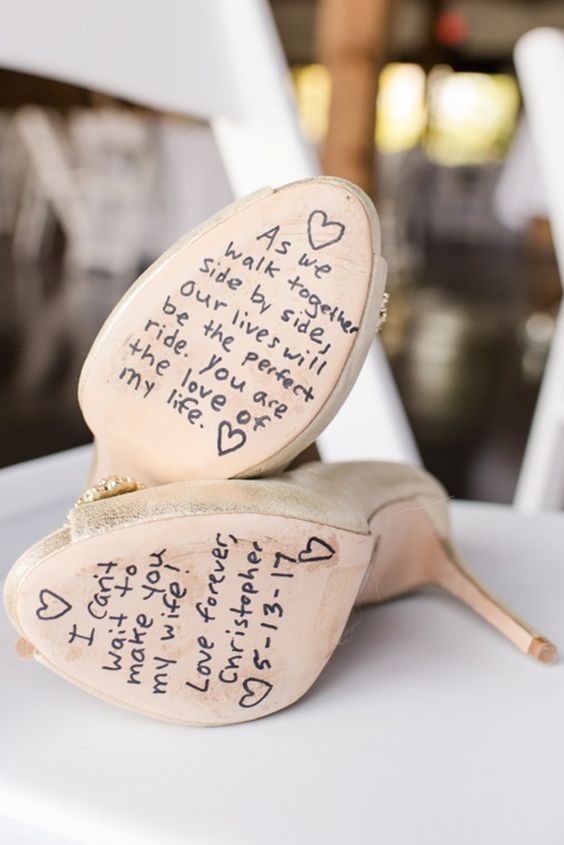 As we
walk together
side by side,
Our lives will
be the perfect
ride. You are
the love of
my life.
I Can't
wait to
make you
my wife!
Love forever,
Christopher
5-13-17